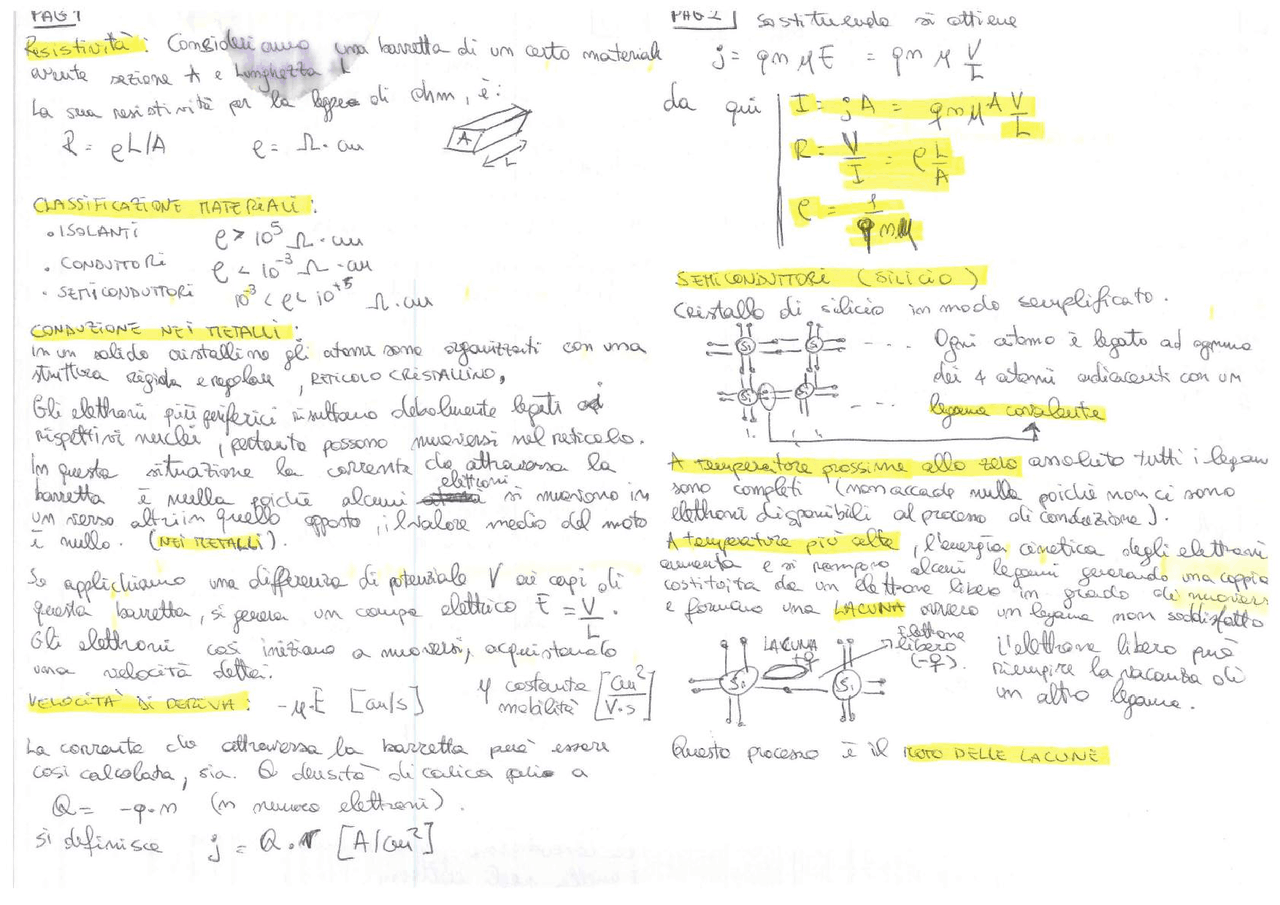 PAG 1
Resistività: Consideriamo una barretta di un certo materiale
avente sezione A e Lunghezza L
La sua resistività per la legge di Ohm, è:
R = ρL/A ρ = Ω·cm
A
L
CLASSIFICAZIONE MATERIALI:
• ISOLANTI ρ > 10⁵ Ω·cm
• CONDUTTORI ρ < 10⁻³ Ω·cm
• SEMICONDUTTORI 10⁻³ < ρ < 10⁺⁵ Ω·cm
CONDUZIONE NEI METALLI:
in un solido cristallino gli atomi sono organizzati con una
struttura rigida e regolare, RETICOLO CRISTALLINO,
Gli elettroni più periferici risultano debolmente legati ai
rispettivi nuclei, pertanto possono muoversi nel reticolo.
In questa situazione la corrente che attraversa la
barretta è nulla poiché alcuni elettroni si muovono in
un verso altri in quello opposto, il valore medio del moto
è nullo. (NEI METALLI).
Se applichiamo una differenza di potenziale V ai capi di
questa barretta, si genera un campo elettrico E = V/L.
Gli elettroni così iniziano a muoversi, acquistando
una velocità detta:
VELOCITÀ DI DERIVA: -μ·E [cm/s] μ costante mobilità [cm²/V·s]
La corrente che attraversa la barretta può essere
così calcolata, sia. Q densità di carica pari a
Q = -q·n (n numero elettroni).
si definisce j = Q·v [A/cm²]
PAG 2 sostituendo si ottiene
j = qnμE = qnμ V/L
da qui I = jA = qnμA V/L
R = V/I = ρ L/A
ρ = 1/qnμ
SEMICONDUTTORI (SILICIO)
Cristallo di silicio in modo semplificato.
Si Si - - - Ogni atomo è legato ad ognuno
dei 4 atomi adiacenti con un
Si Si - - - legame covalente
A temperature prossime allo zero assoluto tutti i legami
sono completi (non accade nulla poiché non ci sono
elettroni disponibili al processo di conduzione).
A temperature più alte, l'energia cinetica degli elettroni
aumenta e si rompono alcuni legami generando una coppia
costituita da un elettrone libero in grado di muoversi
e formano una LACUNA ovvero un legame non soddisfatto
LACUNA +q elettrone libero (-q).
Si Si
L'elettrone libero può
riempire la vacanza di
un altro legame.
Questo processo è il MOTO DELLE LACUNE